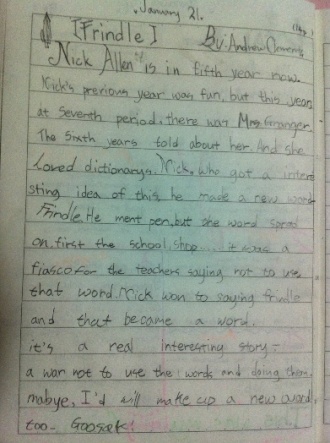 January 21.
[Frindle] By: Andrew Clements
Nick Allen is in fifth year now.
Nick's previous year was fun, but this year,
at seventh period, there was Mrs. Granger.
The Sixth years told about her. And she
loved dictionarys. Nick, who got a intere
sting idea of this, he made a new word
Frindle. He ment pen, but the word spread
on. first the school, shop.... it was a
fiasco for the teachers saying not to use
that word. Nick won to saying frindle
and that became a word.
it's a real interesting story-
a war not to use the words and doing them.
mabye, I'd will make up a new word,
too- Gooseek!